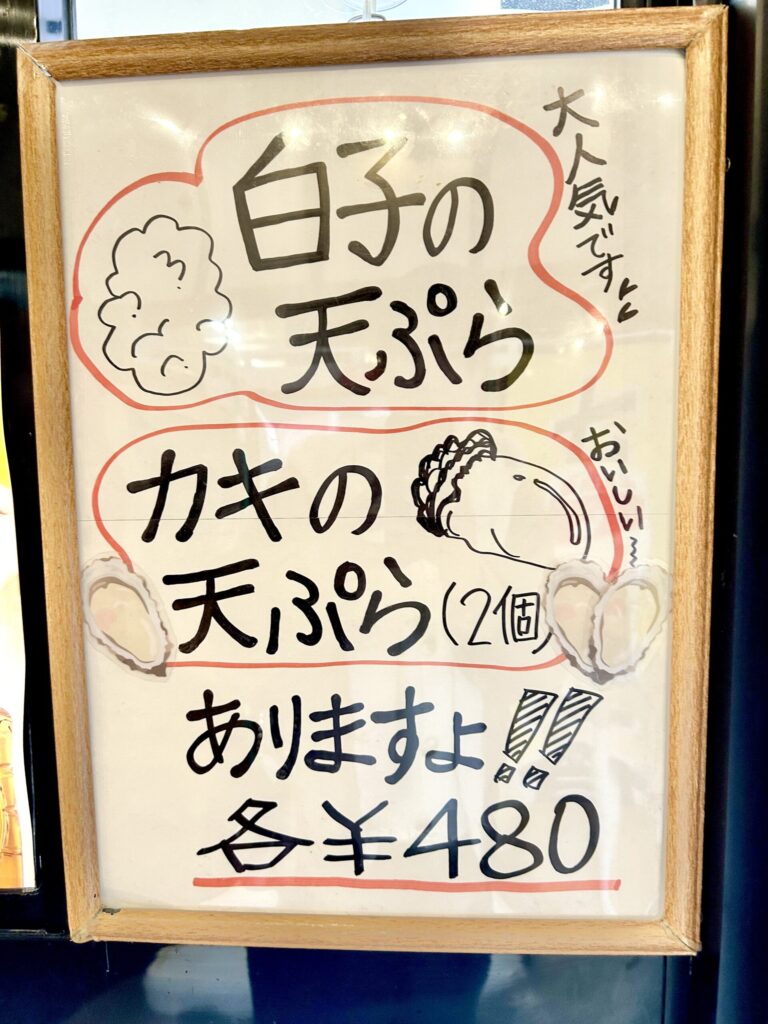 大人気です
白子の
天ぷら
おいしい〜
カキの
天ぷら(2個)
ありますよ!!
各¥480